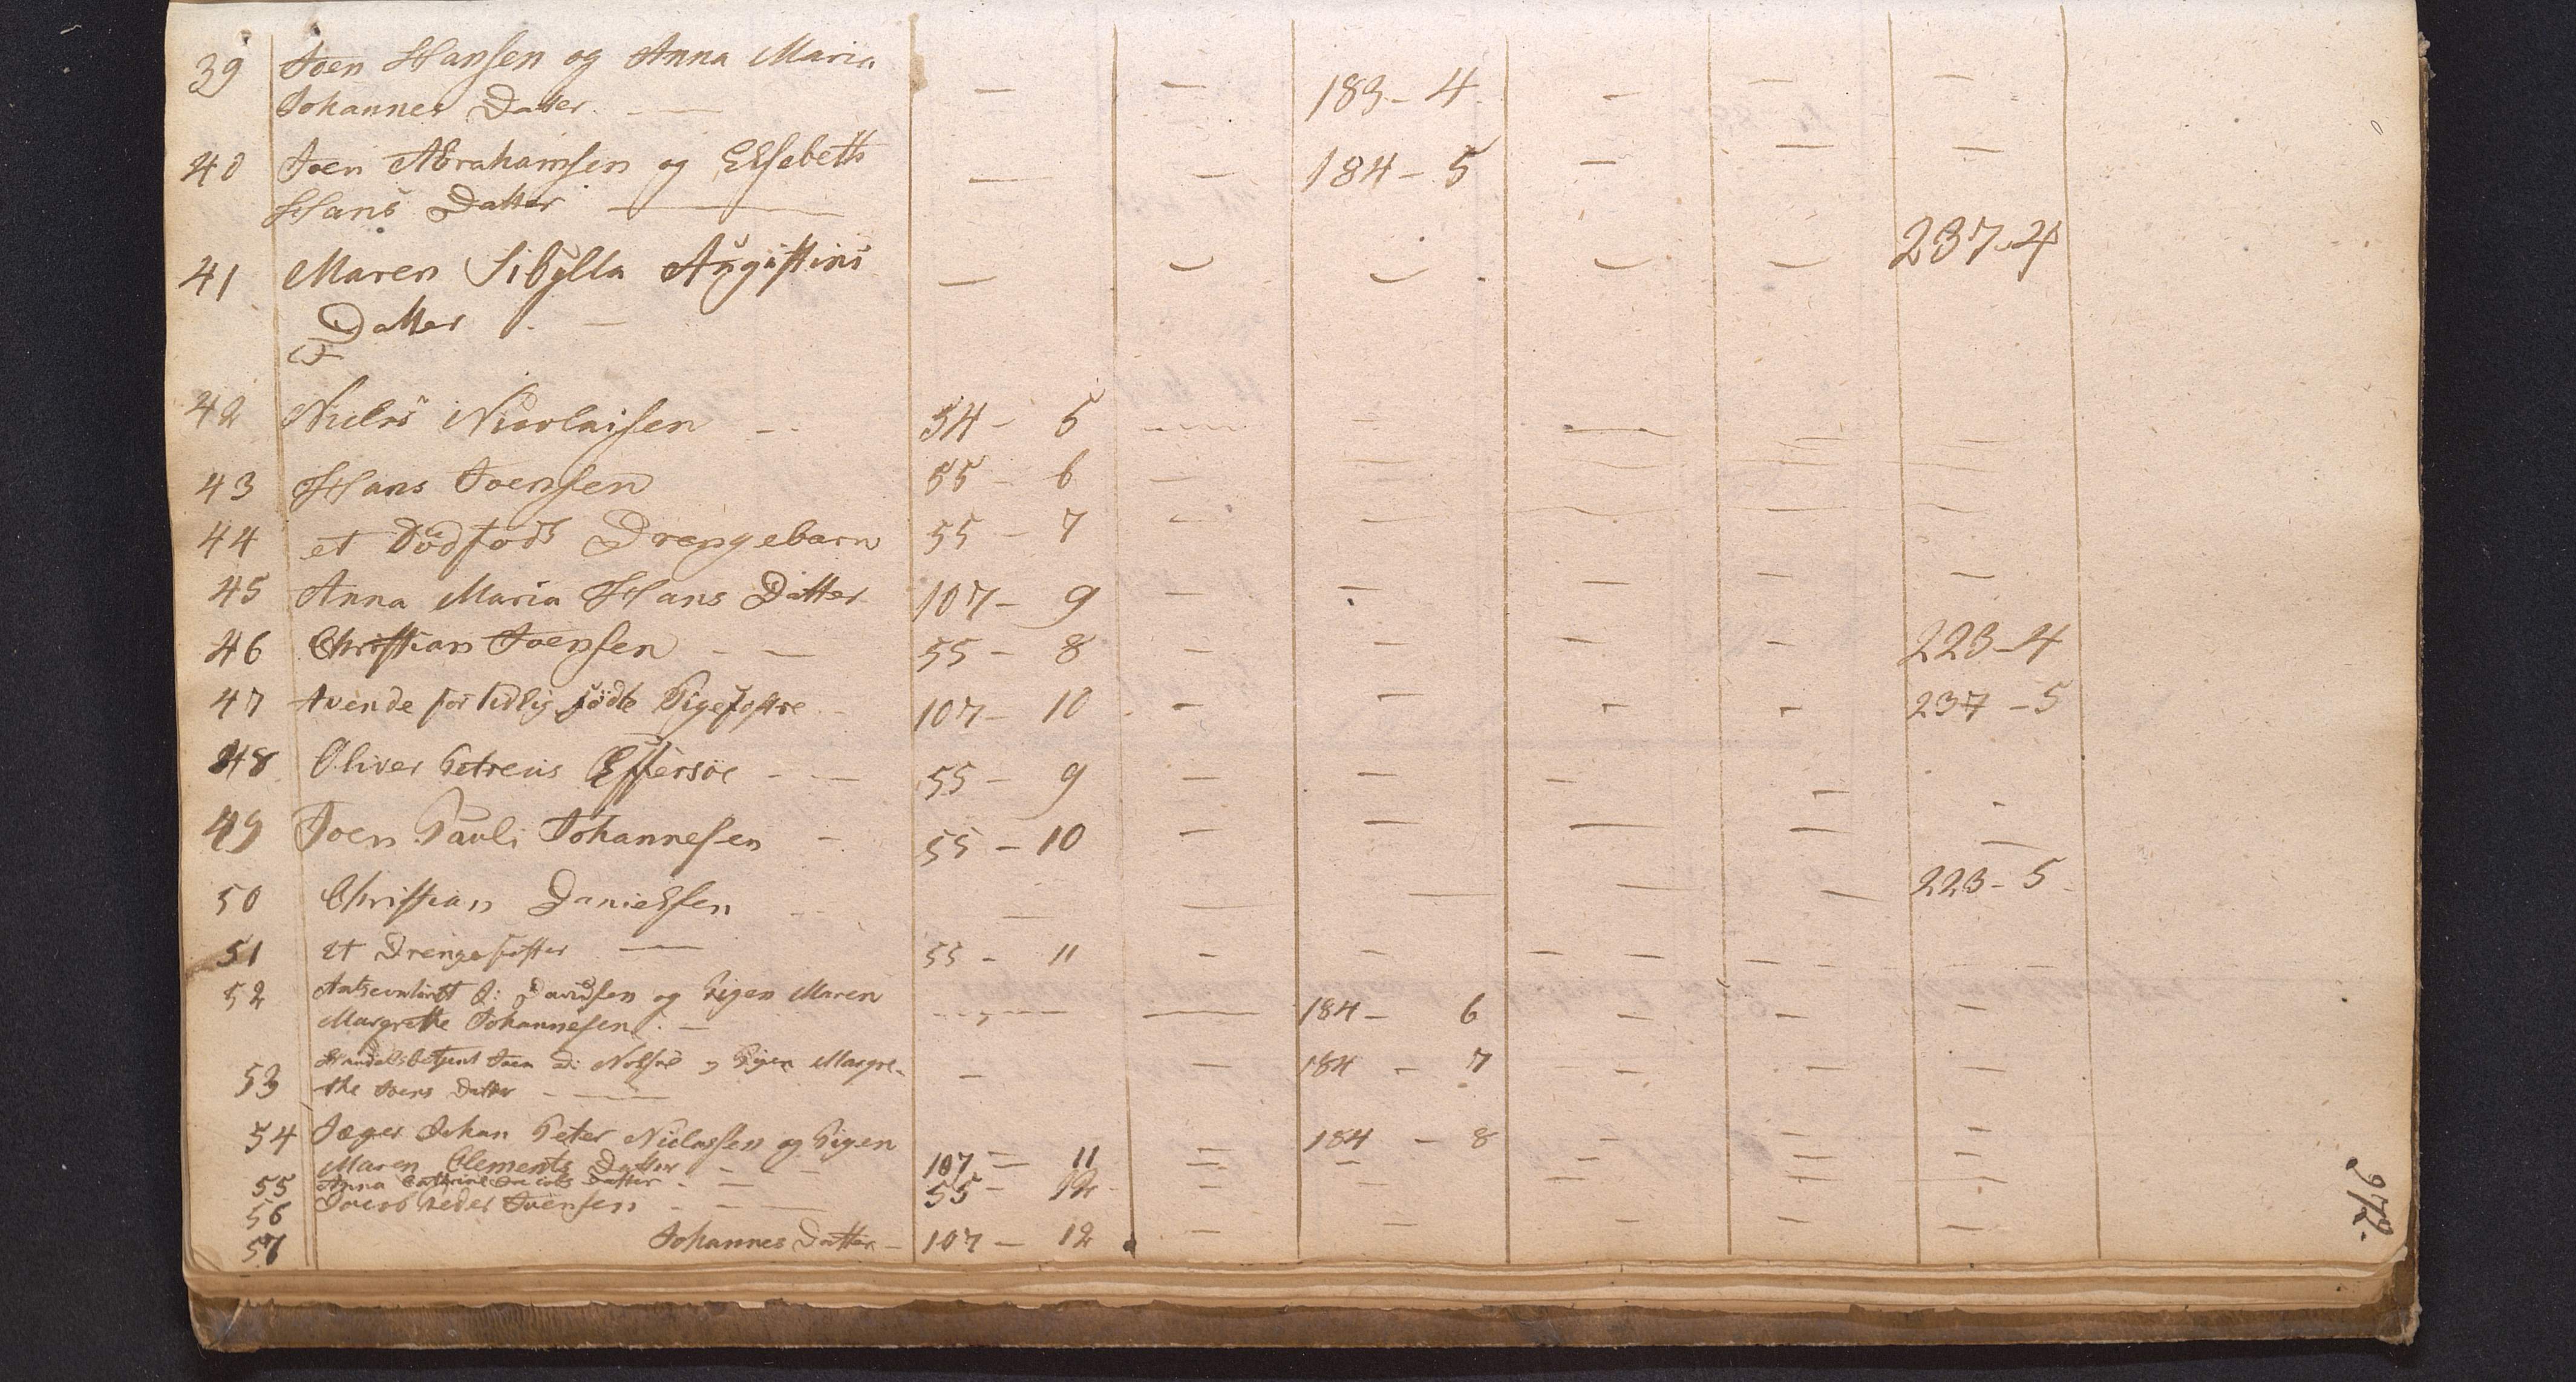 39 Joen Hansen og Anna Maria — — 183 – 4 — — —
Johannes Datter. —
40 Joen Abrahamsen og Elsebeth — — 184 – 5 — — —
Hans Datter —
41 Maren Sibylla Augustins — — — — — 237 – 4
Datter . —
42 Niels Nicolaisen — 54 – 5 — — — — —
43 Hans Joensen 55 – 6 — — — — —
44 et Dödfödt Drengebarn 55 – 7 — — — — —
45 Anna Maria Hans Datter 107 – 9 — — — — —
46 Christian Joensen — — 55 – 8 — — — — 223 – 4
47 tvende for tidlig födte Pigefostre — 107 – 10 — — — — 237 – 5
48 Oliver Petreus Effersöe — — 55 – 9 — — — — —
49 Joen Pauli Johannesen — 55 – 10 — — — — —
50 Christian Danielsen — — — — — — 223 – 5
51 et Drengefoster — 55 – 11 — — — — —
52 J: Davidsen og Pigen Maren — — 184 – 6 — — —
Margrethe Johannesen. —
53 Handelsbetjent Joen D: Nolsöe og Pigen Margre- — — 184 – 7 — — —
the Joens Datter — —
54 Jæger Johan Peter Niclassen og Pigen 184 – 8 — — —
Maren Clements Datter — — —
55 Anna Cathrine Jacobs Datter — — 107 – 11 — — — — —
56 Jacob Peder Joensen — — — 55 – 12 — — — — —
57 Johannes Datter — 107 – 12 — — — — —
972.